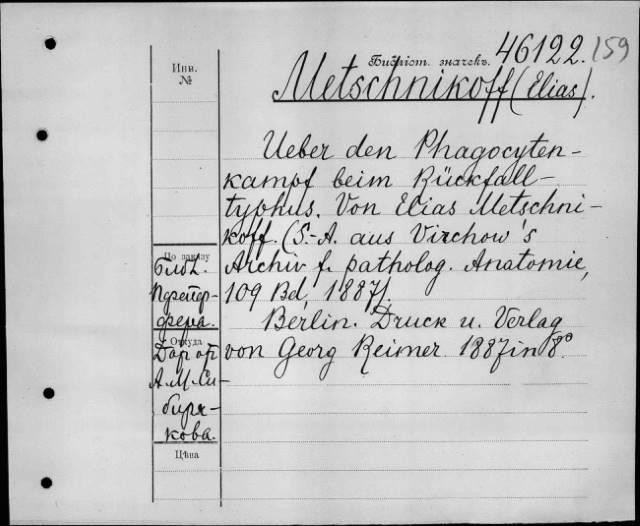 Инв.
№
Библіот. значекъ. 46122. 159
Metschnikoff (Elias).
Ueber den Phagocyten-
kampf beim Rückfall-
typhus. Von Elias Metschni-
koff. (S.-A. aus Virchow's
Archiv f. patholog. Anatomie,
109 Bd, 1887).
Berlin. Druck u. Verlag
von Georg Reimer 1887 in 8°
По заказу
Библ.
Пфейф-
фера.
Откуда
Дар от
А. М. Си-
биря-
кова.
Цѣна